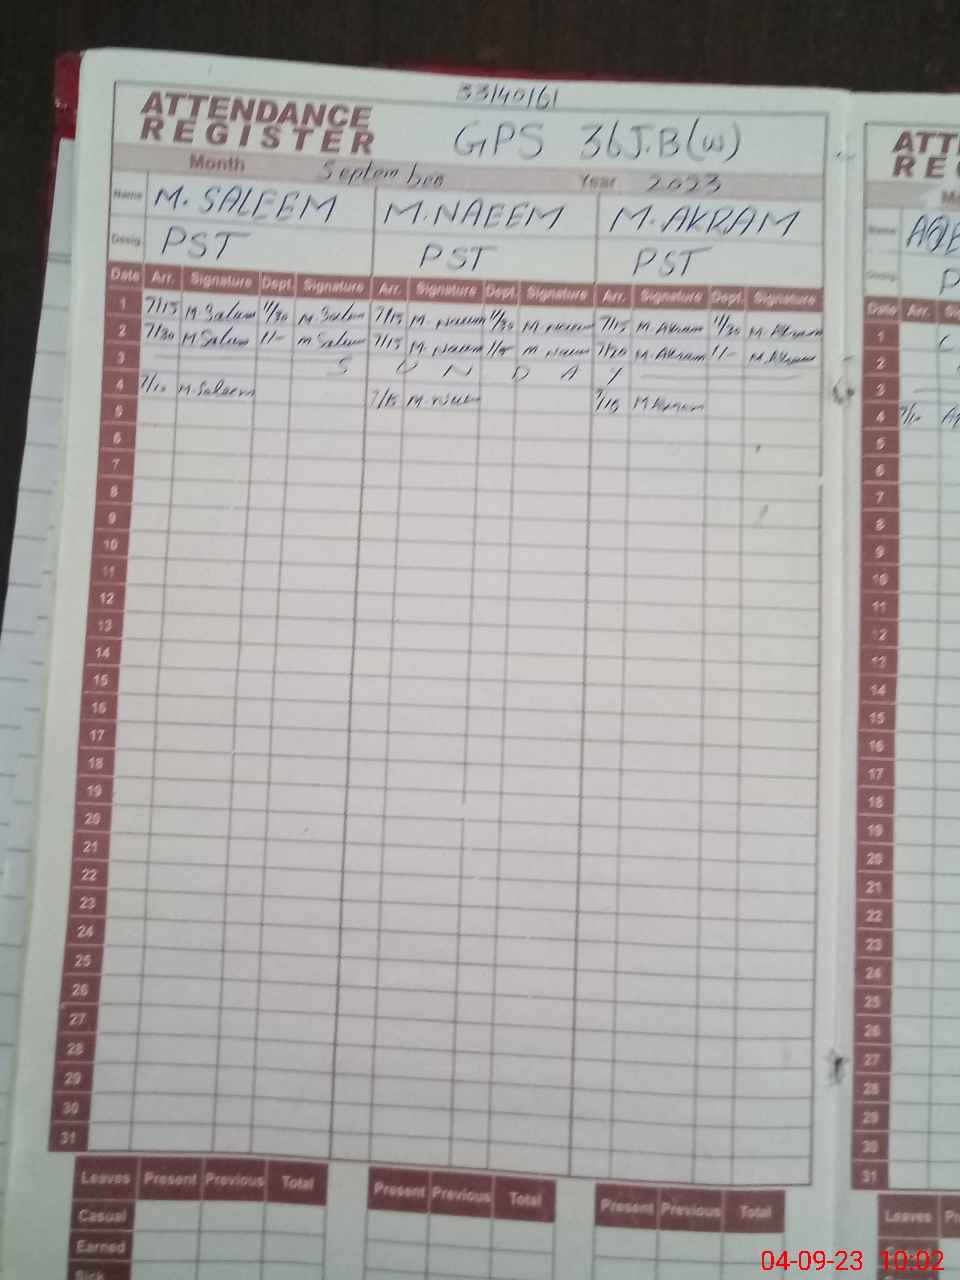 33140161
ATTENDANCE
REGISTER
GPS 36J.B(W)
Month September Year 2023
Name M. SALEEM M.NAEEM M.AKRAM
Desig. PST PST PST
Date Arr. Signature Dept. Signature Arr. Signature Dept. Signature Arr. Signature Dept. Signature
1 7/15 M.Saleem 11/30 M.Saleem 7/15 M.Naeem 11/30 M.Naeem 7/15 M.Akram 11/30 M.Akram
2 7/30 M.Saleem 1/- M.Saleem 7/15 M.Naeem M.Naeem 7/20 M.Akram 1/- M.Akram
3 S U N D A Y
4 7/10 M.Saleem 7/15 M.Naeem 7/15 M.Akram
5
6
7
8
9
10
11
12
13
14
15
16
17
18
19
20
21
22
23
24
25
26
27
28
29
30
31
Leaves Present Previous Total Present Previous Total Present Previous Total
Casual
Earned
Sick
ATT
RE
Name AQE
Desig. P
Date Arr.
1
2
3
4
5
6
7
8
9
10
11
12
13
14
15
16
17
18
19
20
21
22
23
24
25
26
27
28
29
30
31
Leaves Pr
04-09-23 10:02